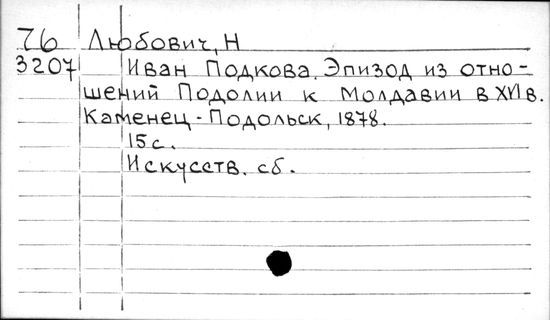 76 Любович, Н
3207 Иван Подкова. Эпизод из отно-
шений Подолии к Молдавии в XVI в.
Каменец-Подольск, 1878.
15 с.
Искусств. сб.